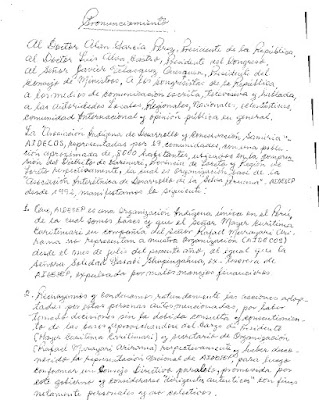 Pronunciamiento
Al Doctor Alan García Pérez, Presidente de la República,
al Doctor Luis Alva Castro, Presidente del Congreso,
al Señor Javier Velásquez Quesquén, Presidente del
Consejo de Ministros, a los Congresistas de la República,
a los medios de comunicación escrita, televisiva y hablada
a las Autoridades Locales, Regionales, Nacionales, eclesiásticas,
comunidad Internacional y opinión pública en general.
La Asociación Indígena de Desarrollo y Conservación Samiria -
AIDECOS, representadas por 19 comunidades, con una pobla-
ción aproximada de 8000 habitantes, ubicados en la compren-
sión del Distrito de , Provincia de Loreto y Región de
Loreto respectivamente, la cual es organización base de la
"Asociación Interétnica de Desarrollo de la Selva peruana" - AIDESEP
desde 1992, manifestamos lo siguiente:
1. Que, AIDESEP es una Organización Indígena única en el Perú,
de la cual somos bases y que el Señor Mayer
en compañía del Señor Rafael
no representan a nuestra Organización (AIDECOS)
desde el mes de julio del presente año, al igual que la
Señora ex-Tesorera de
AIDESEP, expulsada por malos manejos financieros.
2. Rechazamos y condenamos rotundamente las acciones adop-
tadas por estas personas autonominadas, por haber
tomado decisiones sin la debida consulta y consentimien-
to de las bases, del Cargo de Presidente
(Mayer ) y secretario de Organización
(Rafael ) respectivamente y haber desco-
nocido la representación Nacional de AIDESEP, para luego
conformar un Consejo Directivo paralelo, promovido por
este gobierno y considerarse "dirigentes auténticos" con fines
netamente personales y no colectivos.